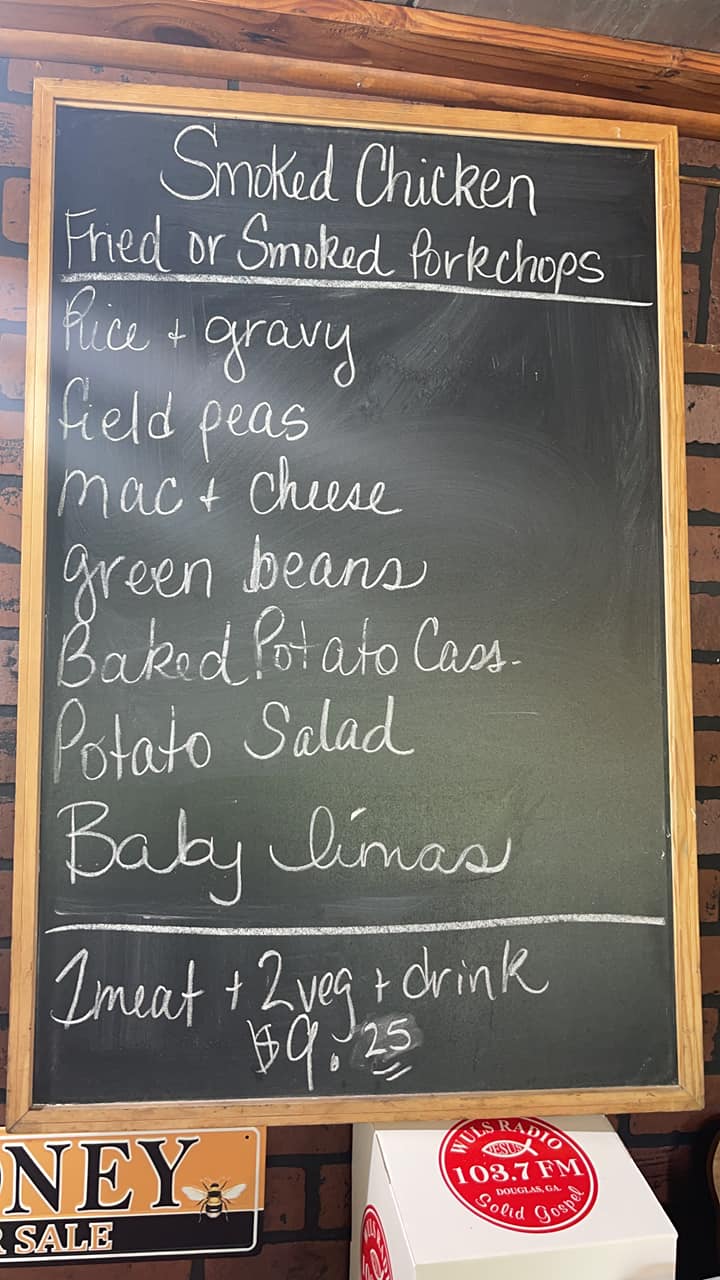 Smoked Chicken
Fried or Smoked Porkchops
Rice + gravy
field peas
mac + cheese
green beans
Baked Potato Cass.
Potato Salad
Baby limas
1 meat + 2 veg + drink
$9.25
NEY
R SALE
WULS RADIO
JESUS
103.7 FM
DOUGLAS, GA.
Solid Gospel